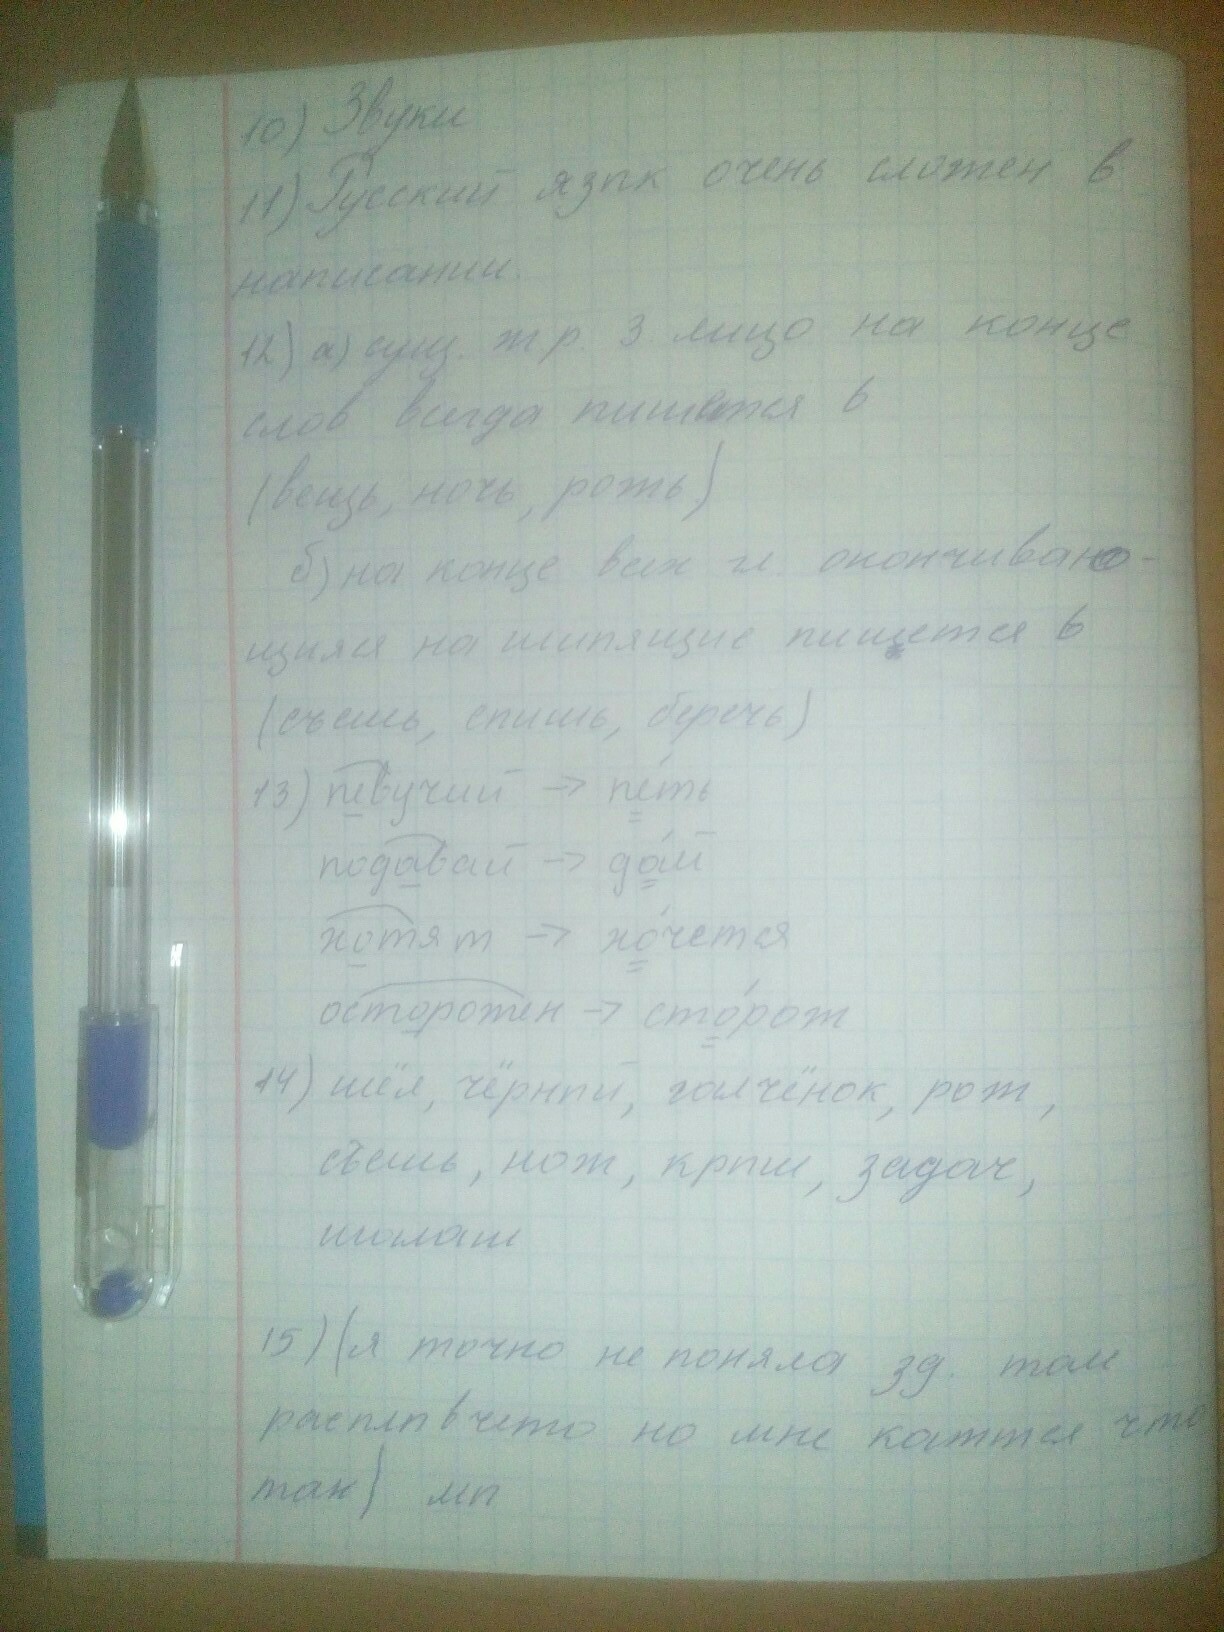 10) Звуки
11) Русский язык очень сложен в
написании.
12) а) сущ. ж р. 3 лицо на конце
слов всегда пишется ь
(вещь, ночь, рожь)
б) на конце всех гл. оконч­иваю-
щихся на шипящие пишется ь
(съешь, спишь, беречь)
13) певучий -> петь
подавай -> дай
хотят -> хочется
осторожен -> сторож
14) шёл, чёрный, галчёнок, рож,
съешь, нож, крыш, задач,
шалаш
15) (я точно не поняла зд. там
расплывчето но мне кажтся что
так) мы